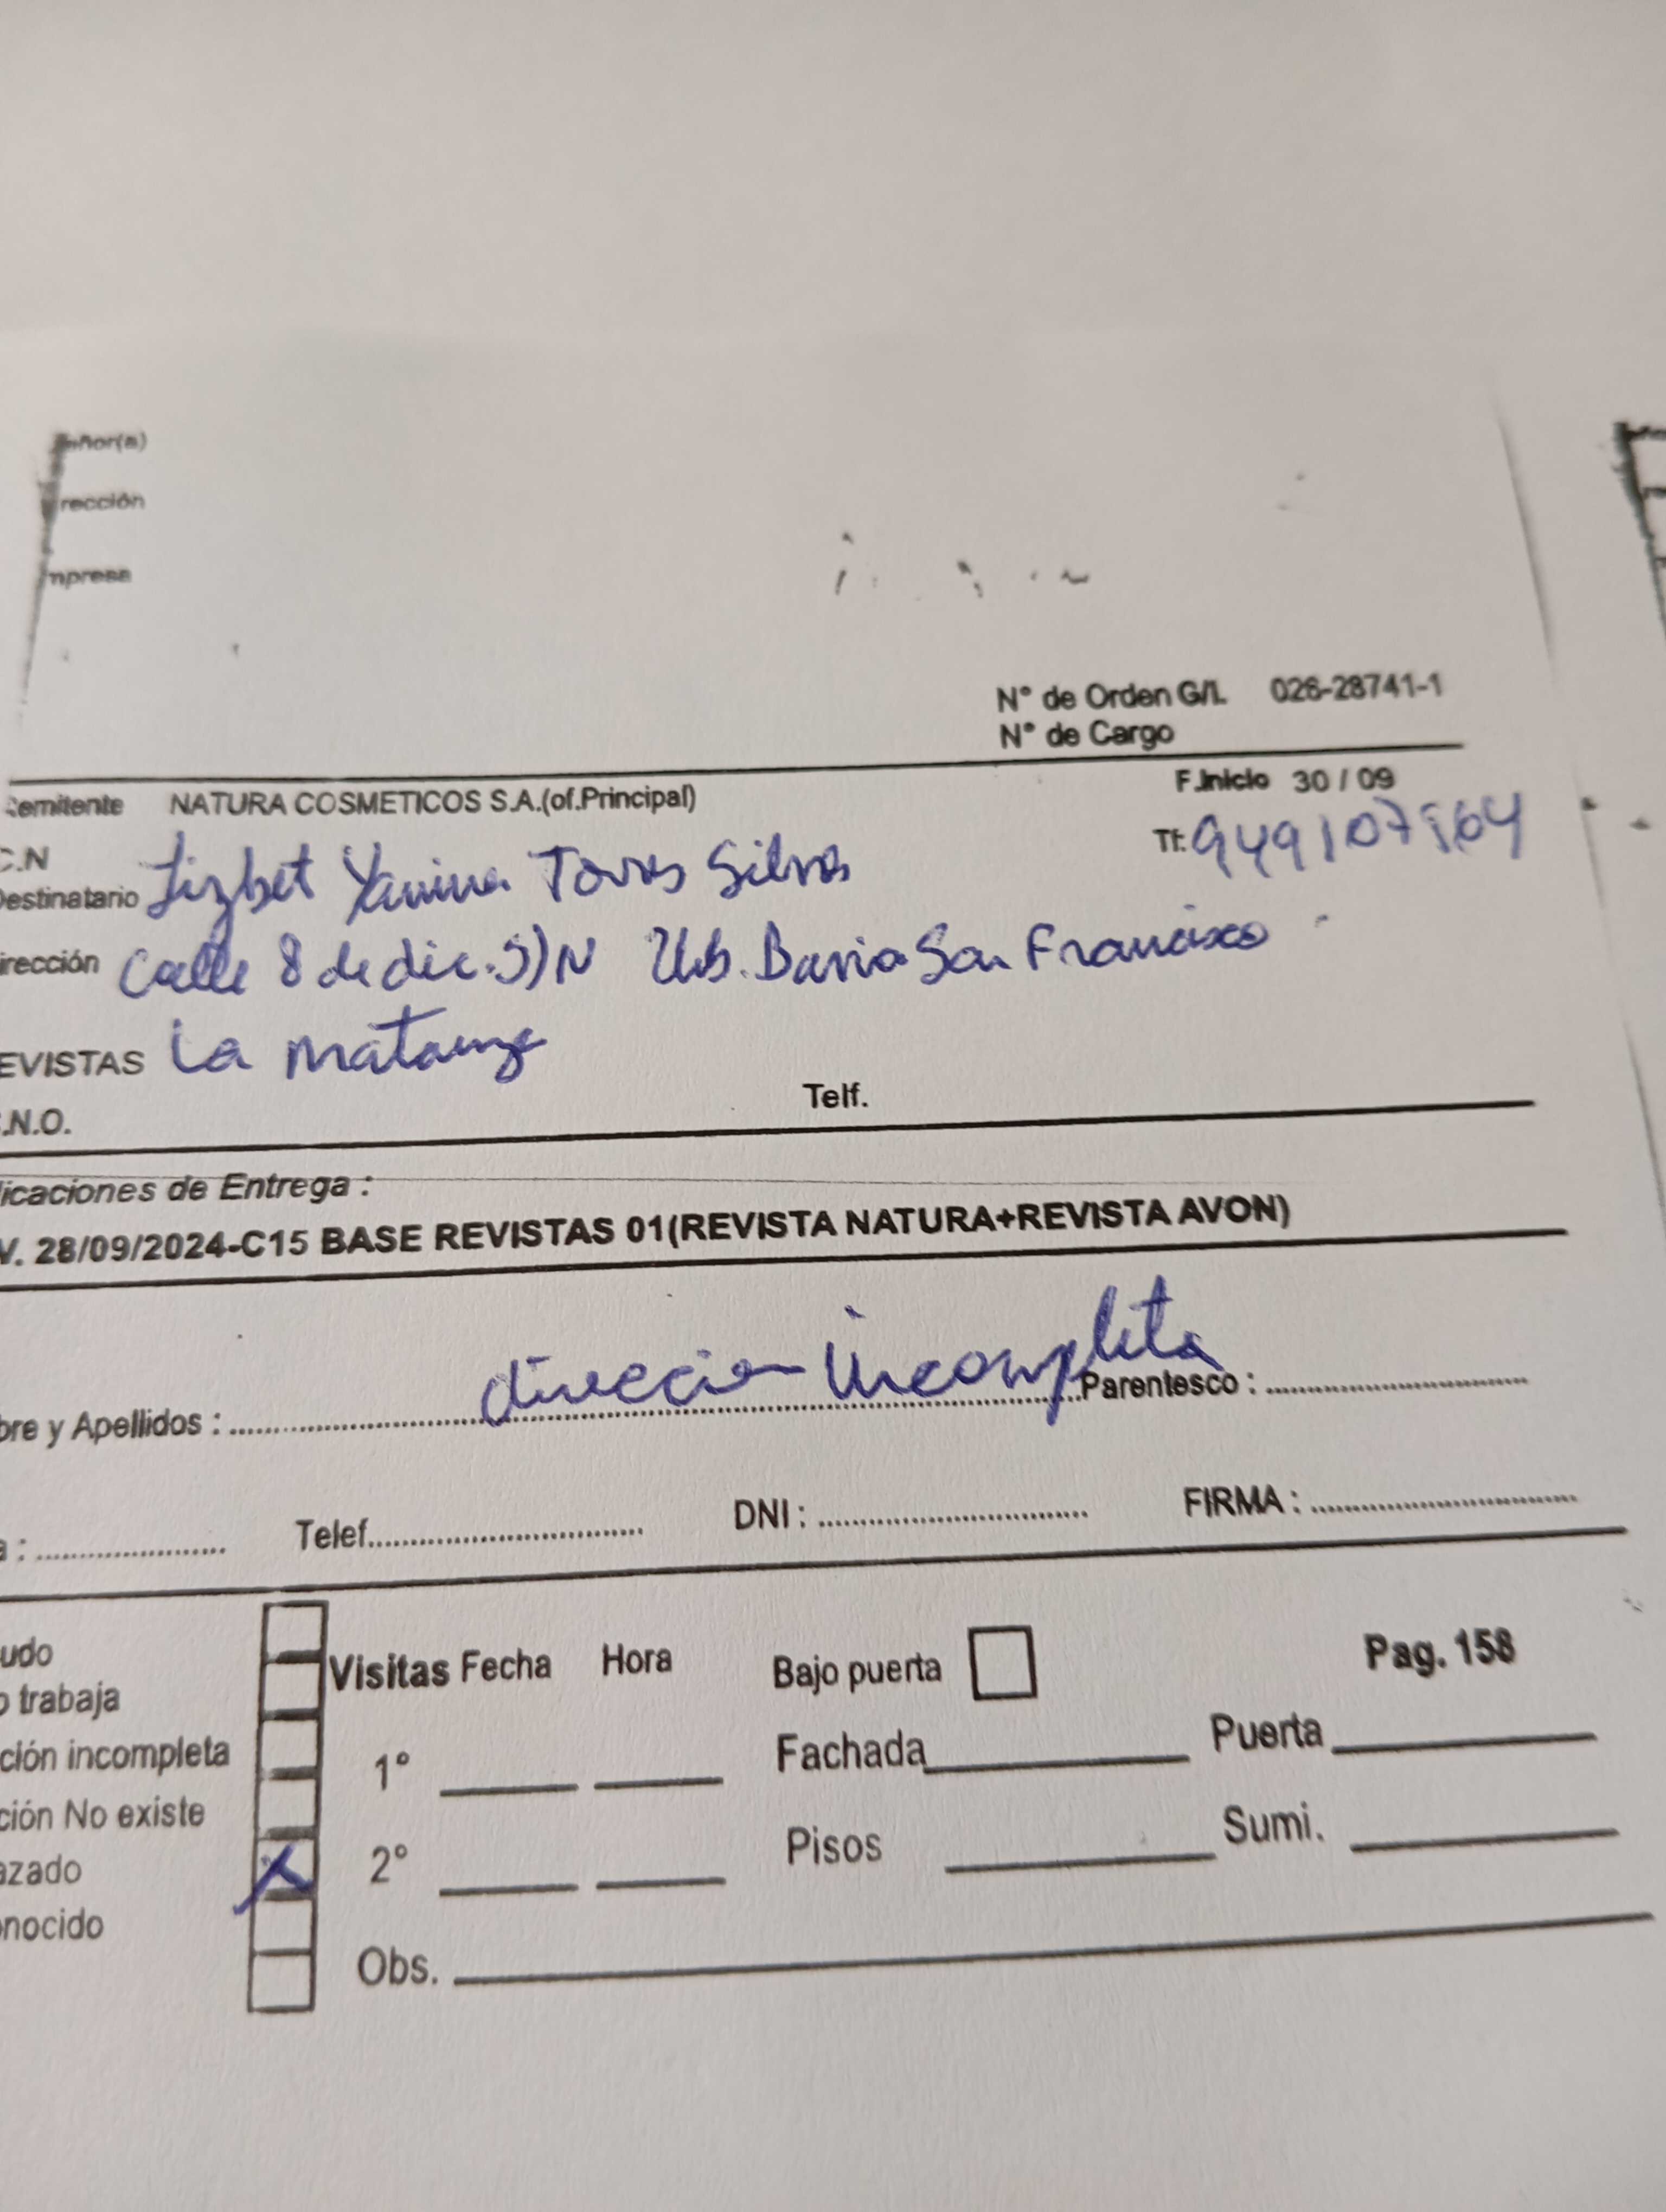 eñor(a)
rección
mpresa
N° de Orden G/L 026-28741-1
N° de Cargo
Remitente NATURA COSMETICOS S.A.(of.Principal) F.Inicio 30 / 09
C.N Tf:
Destinatario Lizbet Yanina Torres Silva
irección Calle 8 de dic. S/N Urb. Barrio San Francisco
EVISTAS La Matanza
.N.O. Telf.
icaciones de Entrega :
V. 28/09/2024-C15 BASE REVISTAS 01(REVISTA NATURA+REVISTA AVON)
direccion incompleta
bre y Apellidos : Parentesco :
a : Telef. DNI : FIRMA :
udo
Visitas Fecha Hora Bajo puerta Pag. 158
o trabaja
ción incompleta 1° Fachada Puerta
ción No existe
azado 2° Pisos Sumi.
onocido
Obs.